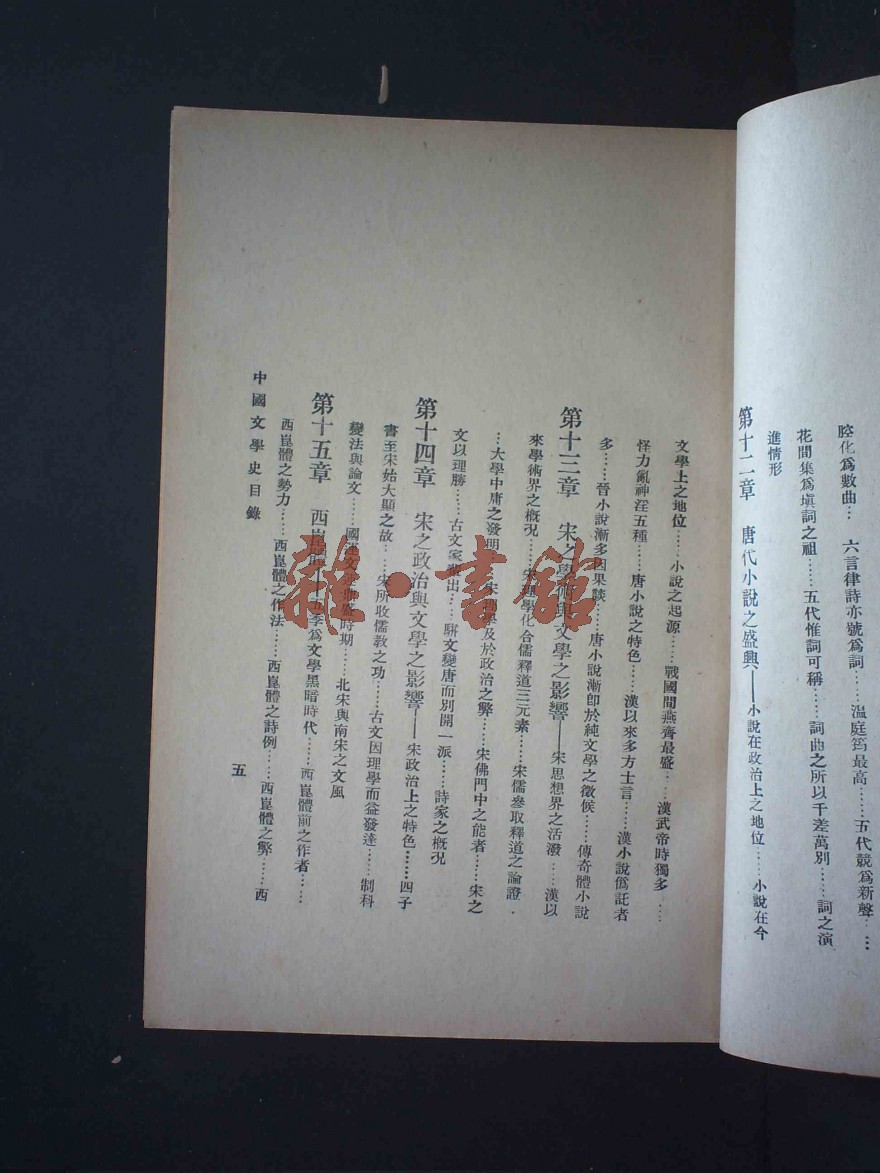 腔化爲數曲…六言律詩亦號爲詞……溫庭筠最高……五代競爲新聲……
花間集爲塡詞之祖……五代惟詞可稱……詞曲之所以千差萬別……詞之演
進情形
第十二章 唐代小說之盛興——小說在政治上之地位……小說在今
文學上之地位……小說之起源……戰國間燕齊最盛……漢武帝時獨多……
怪力亂神淫五種……唐小說之特色……漢以來多方士言……漢小說僞託者
多……晉小說漸多因果談……唐小說漸卽於純文學之徵候……傳奇體小說
第十三章 宋之學術與文學之影響——宋思想界之活潑……漢以
來學術界之槪況……宋學化合儒釋道三元素……宋儒參取釋道之論證
…大學中庸之發明……宋學及於政治之弊……宋佛門中之能者……宋之
文以理勝……古文家輩出……駢文變唐而別開一派……詩家之槪況
第十四章 宋之政治與文學之影響——宋政治上之特色……四子
書至宋始大顯之故……宋所收儒敎之功……古文因理學而益發達……制科
變法與論文……國運文運盛時期……北宋與南宋之文風
第十五章 西崑體——五季爲文學黑暗時代……西崑體前之作者……
西崑體之勢力……西崑體之作法……西崑體之詩例……西崑體之弊……西
中國文學史目錄
五
雜·書館